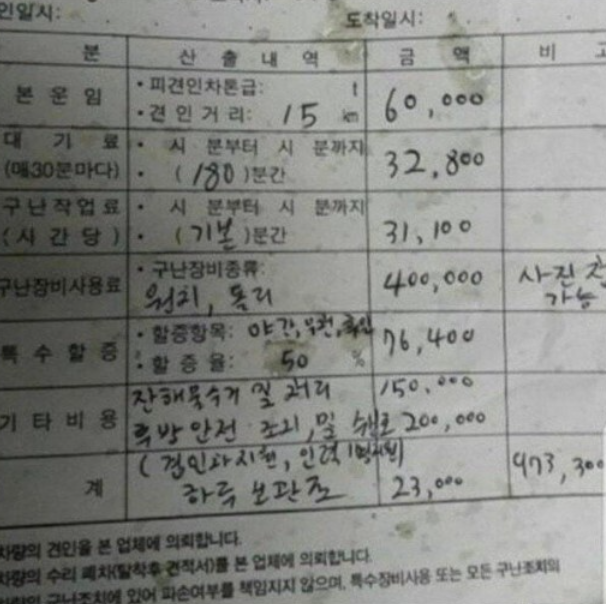 인일시:
도착일시:
분 산 출 내 역 금 액 비 고
본 운 임 • 피견인차톤급: t
• 견 인 거 리: 15 km 60,000
대 기 료 • 시 분부터 시 분까지
(매30분마다) • (180)분간 32,800
구난작업료 • 시 분부터 시 분까지
(시 간 당) • (기본)분간 31,100
구난장비사용료 • 구난장비종류:
윈치, 돌리 400,000 사진 가능
특 수 할 증 • 할증항목: 야간, 우천,
• 할 증 율: 50 % 76,400
기 타 비 용 잔해물수거 및 처리 150,000
후방안전 조치, 및 200,000
계 (견인차지원, 인력 )
하루 보관료 23,000 973,300
차량의 견인을 본 업체에 의뢰합니다.
차량의 수리 폐차(탈착후 견적서)를 본 업체에 의뢰합니다.
차량의 구난조치에 있어 파손여부를 책임지지 않으며, 특수장비사용 또는 모든 구난조치의